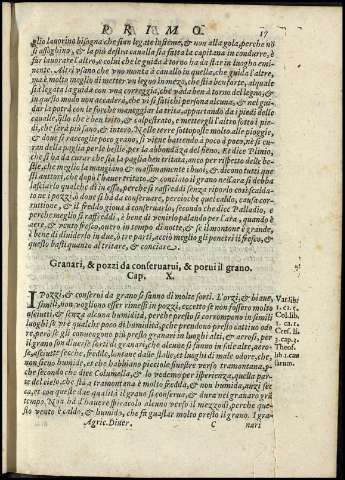 PRIMO. 17
glio lauorino bisogna che sian legate insieme, & non alla gola, perche nõ
si affoghino, & la più destra caualla sia fatta la capitana in condurre, &
far lauorare l'altre, e colui che le guida à torno ha da stare in luogho emi
nente. Altri vsano che vno monta à cauallo in quella, che guida l'altre,
ma è molto meglio, che egli stia à terra, ma che stia ben forte, al quale
sia legata la guida con vna correggia, che vada ben à torno del legno, &
in questo modo non accaderà, che vi si fatichi persona alcuna, & nel gui-
dar la potrà con le funi
caualle, fallo che è ben trito, & calpestrato, e mettergli l'altro sotto i pie-
di, che sarà più sano, & intero. Nelle terre sottoposte molto alle pioggie,
e doue si raccoglie poco grano, si viene battendo à poco à poco, nè si cu-
ran della paglia per le bestie, per la abbondanza del fieno. Et dice Plinio,
che si ha da curar che sia la paglia ben tritata, anco per rispetto delle be-
stie, che meglio la mangiano & massimamente i buoi, & dicono tutti que
sti auttori, che dopò l'hauer tritato, & conciato il grano nell'ara, si debba
lasciarlo qualche dì in essa, perche si raffreddi senza riporlo così caldo
ne i pozzi, ò doue si ha da conseruare, percioche quel caldo, causa cor-
ruttione, & il freddo gioua à conseruarlo, secondo che dice Palladio, e
perche meglio si raffreddi, è bene di venirlo palando per l'ara, quando è
aere, & vento fresco, ouero in tempo di notte, & se il montone è grande,
è bene di diuiderlo in due, ò tre parti, acciò meglio gli penetri il fresco, &
questo basti quanto al tritare, & conciare.
Granari, & pozzi da conseruarui, & porui il grano.
Cap. X.
I Pozzi, & conserui da grano si fanno di molte sorti. L'orzi, & biaue,
simili, non vogliono esser rimessi in pozzi, eccetto se non fossero molto
asciutti, & senza alcuna humidità, perche presto si corrompono in simili
luoghi se v'è qualche poco di humidità, pche prendono presto cattiuo odo
re, però se gli conuengono più presto granari in luoghi alti, & aerosi, per
il grano son diuerse sorti di granari, che alcune si fanno in sale alte, aero-
se, asciutte, secche, lontane dalle stalle, et luoghi di male odore, che
non siano humidi, et che habbiano picciole finestre verso tramontana, per
che secondo che dice Columella, & lo vedemo per isperienza, quella par
te del cielo, che sta à tramontana è molto fredda, & non humida, anzi sec-
ca, et con queste due qualità il grano si conserua, & dura nei granari grã
tempo. Non ha d'hauere spiracolo alcuno verso il mezzodì, perche que-
sto vento è caldo, & humido, che fa guastar molto presto il grano. I gra-
Agric. Diuer. C nari
Var. lib.
1. ca. 1.
Col. lib.
1. ca. 2.
Cre. li.
3. cap. 2.
Theof.
lib. 1. cau
sarum.